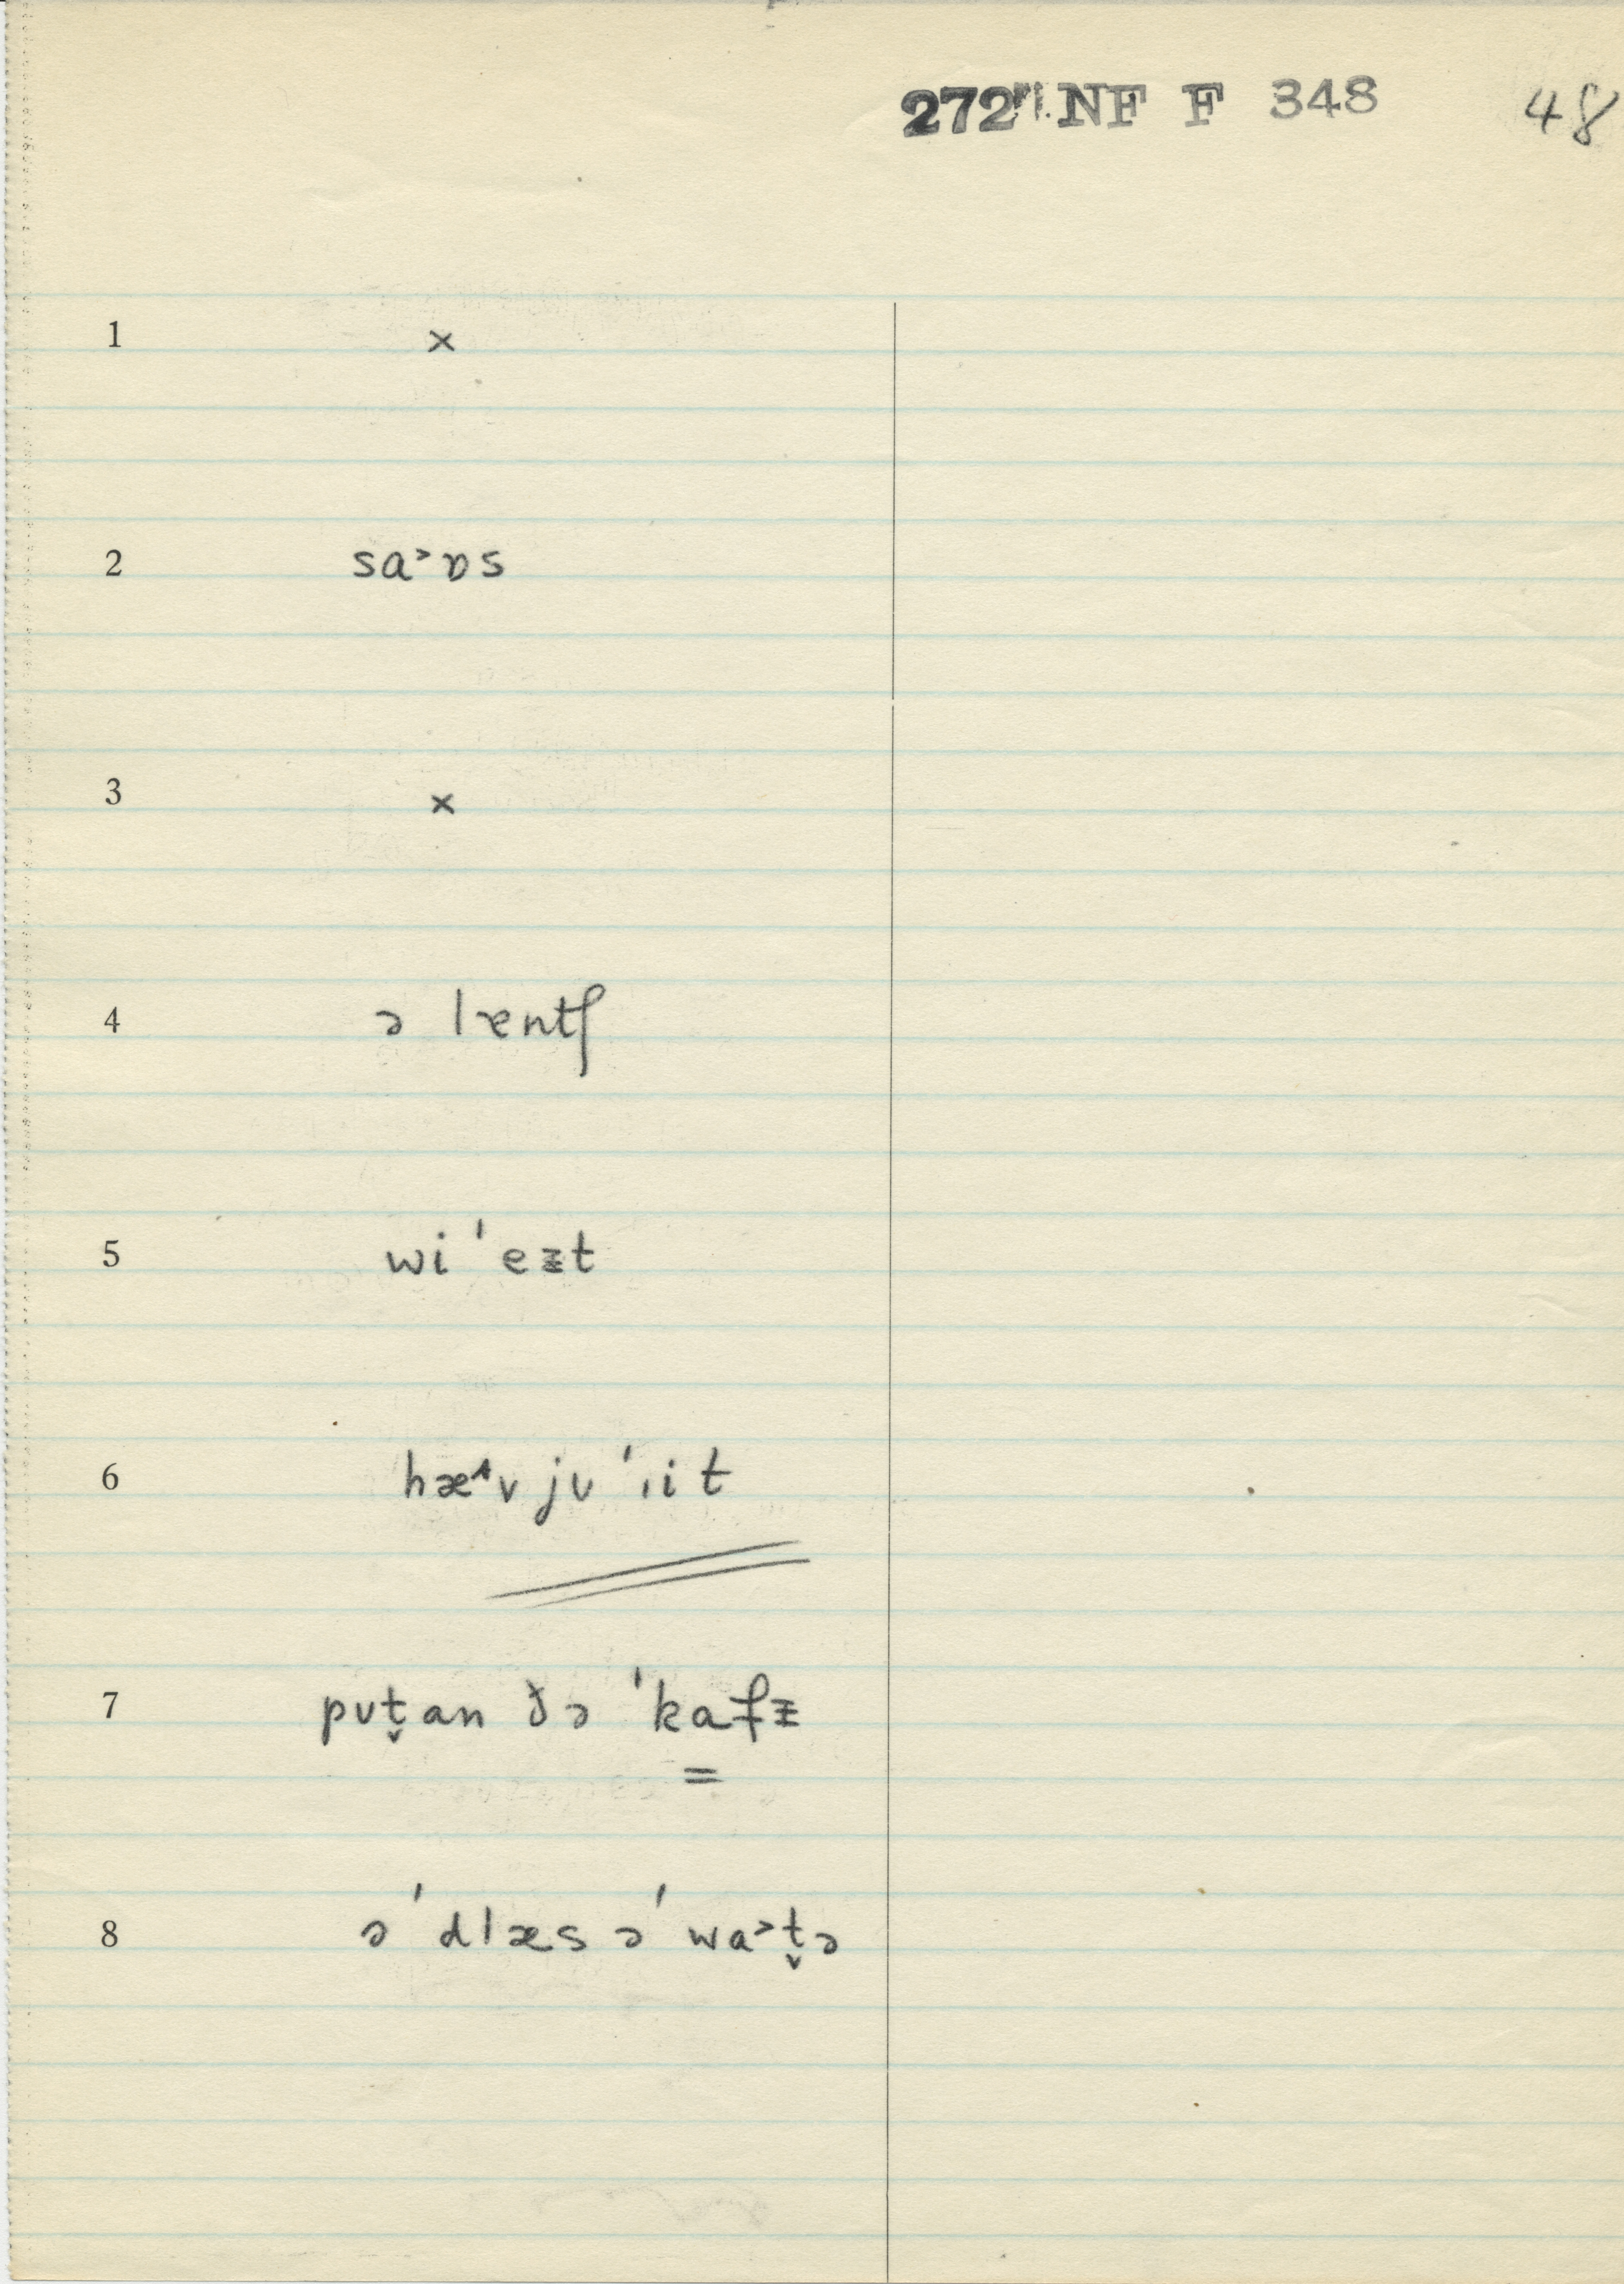 272 NF F 348 48
1 ×
2 sa˃ɒs
3 ×
4 ə læntʃ
5 wi ˈeƶt
6 hæ˄v jʊ ˈıit
7 pʊt̬an ðə ˈkafƶ
=
8 ə ˈdlæs ə ˈwa˃t̬ə